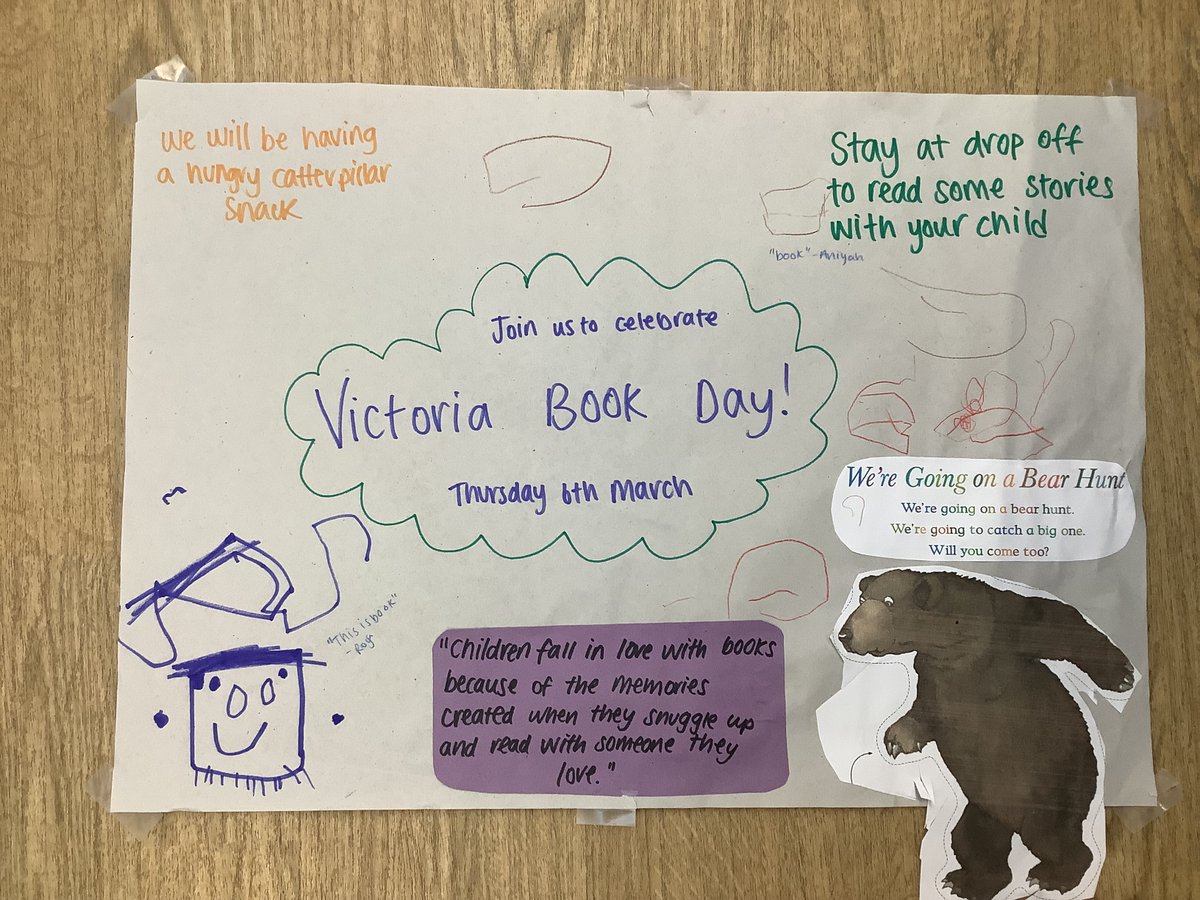 we will be having
a hungry catterpillar
snack
Stay at drop off
to read some stories
with your child
"book" - Aniyah
Join us to celebrate
Victoria Book Day!
Thursday 6th March
We're Going on a Bear Hunt
We're going on a bear hunt.
We're going to catch a big one.
Will you come too?
"This is book"
"Children fall in love with books
because of the memories
created when they snuggle up
and read with someone they
love."